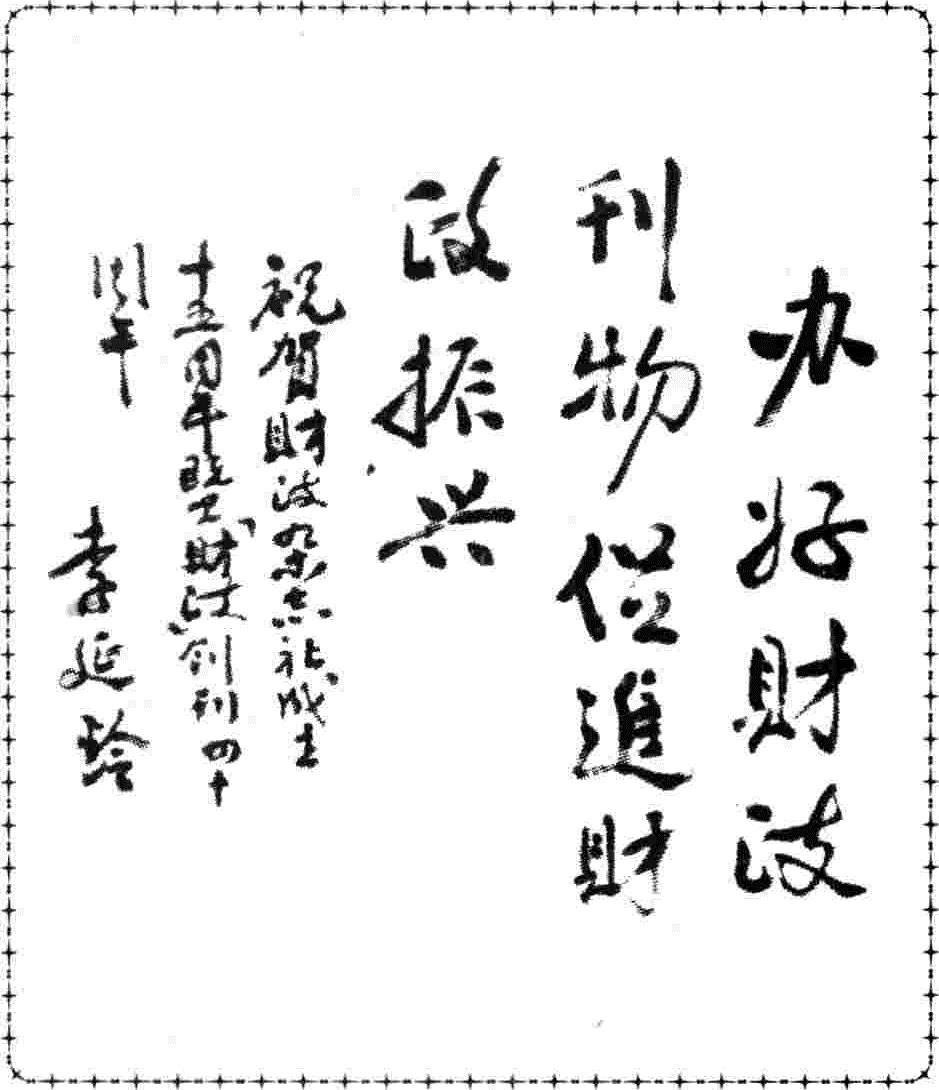 办好財政
刊物促進財
政振兴
祝賀財政杂志社成立
十五周年暨《財政》创刊四十
周年
李延龄